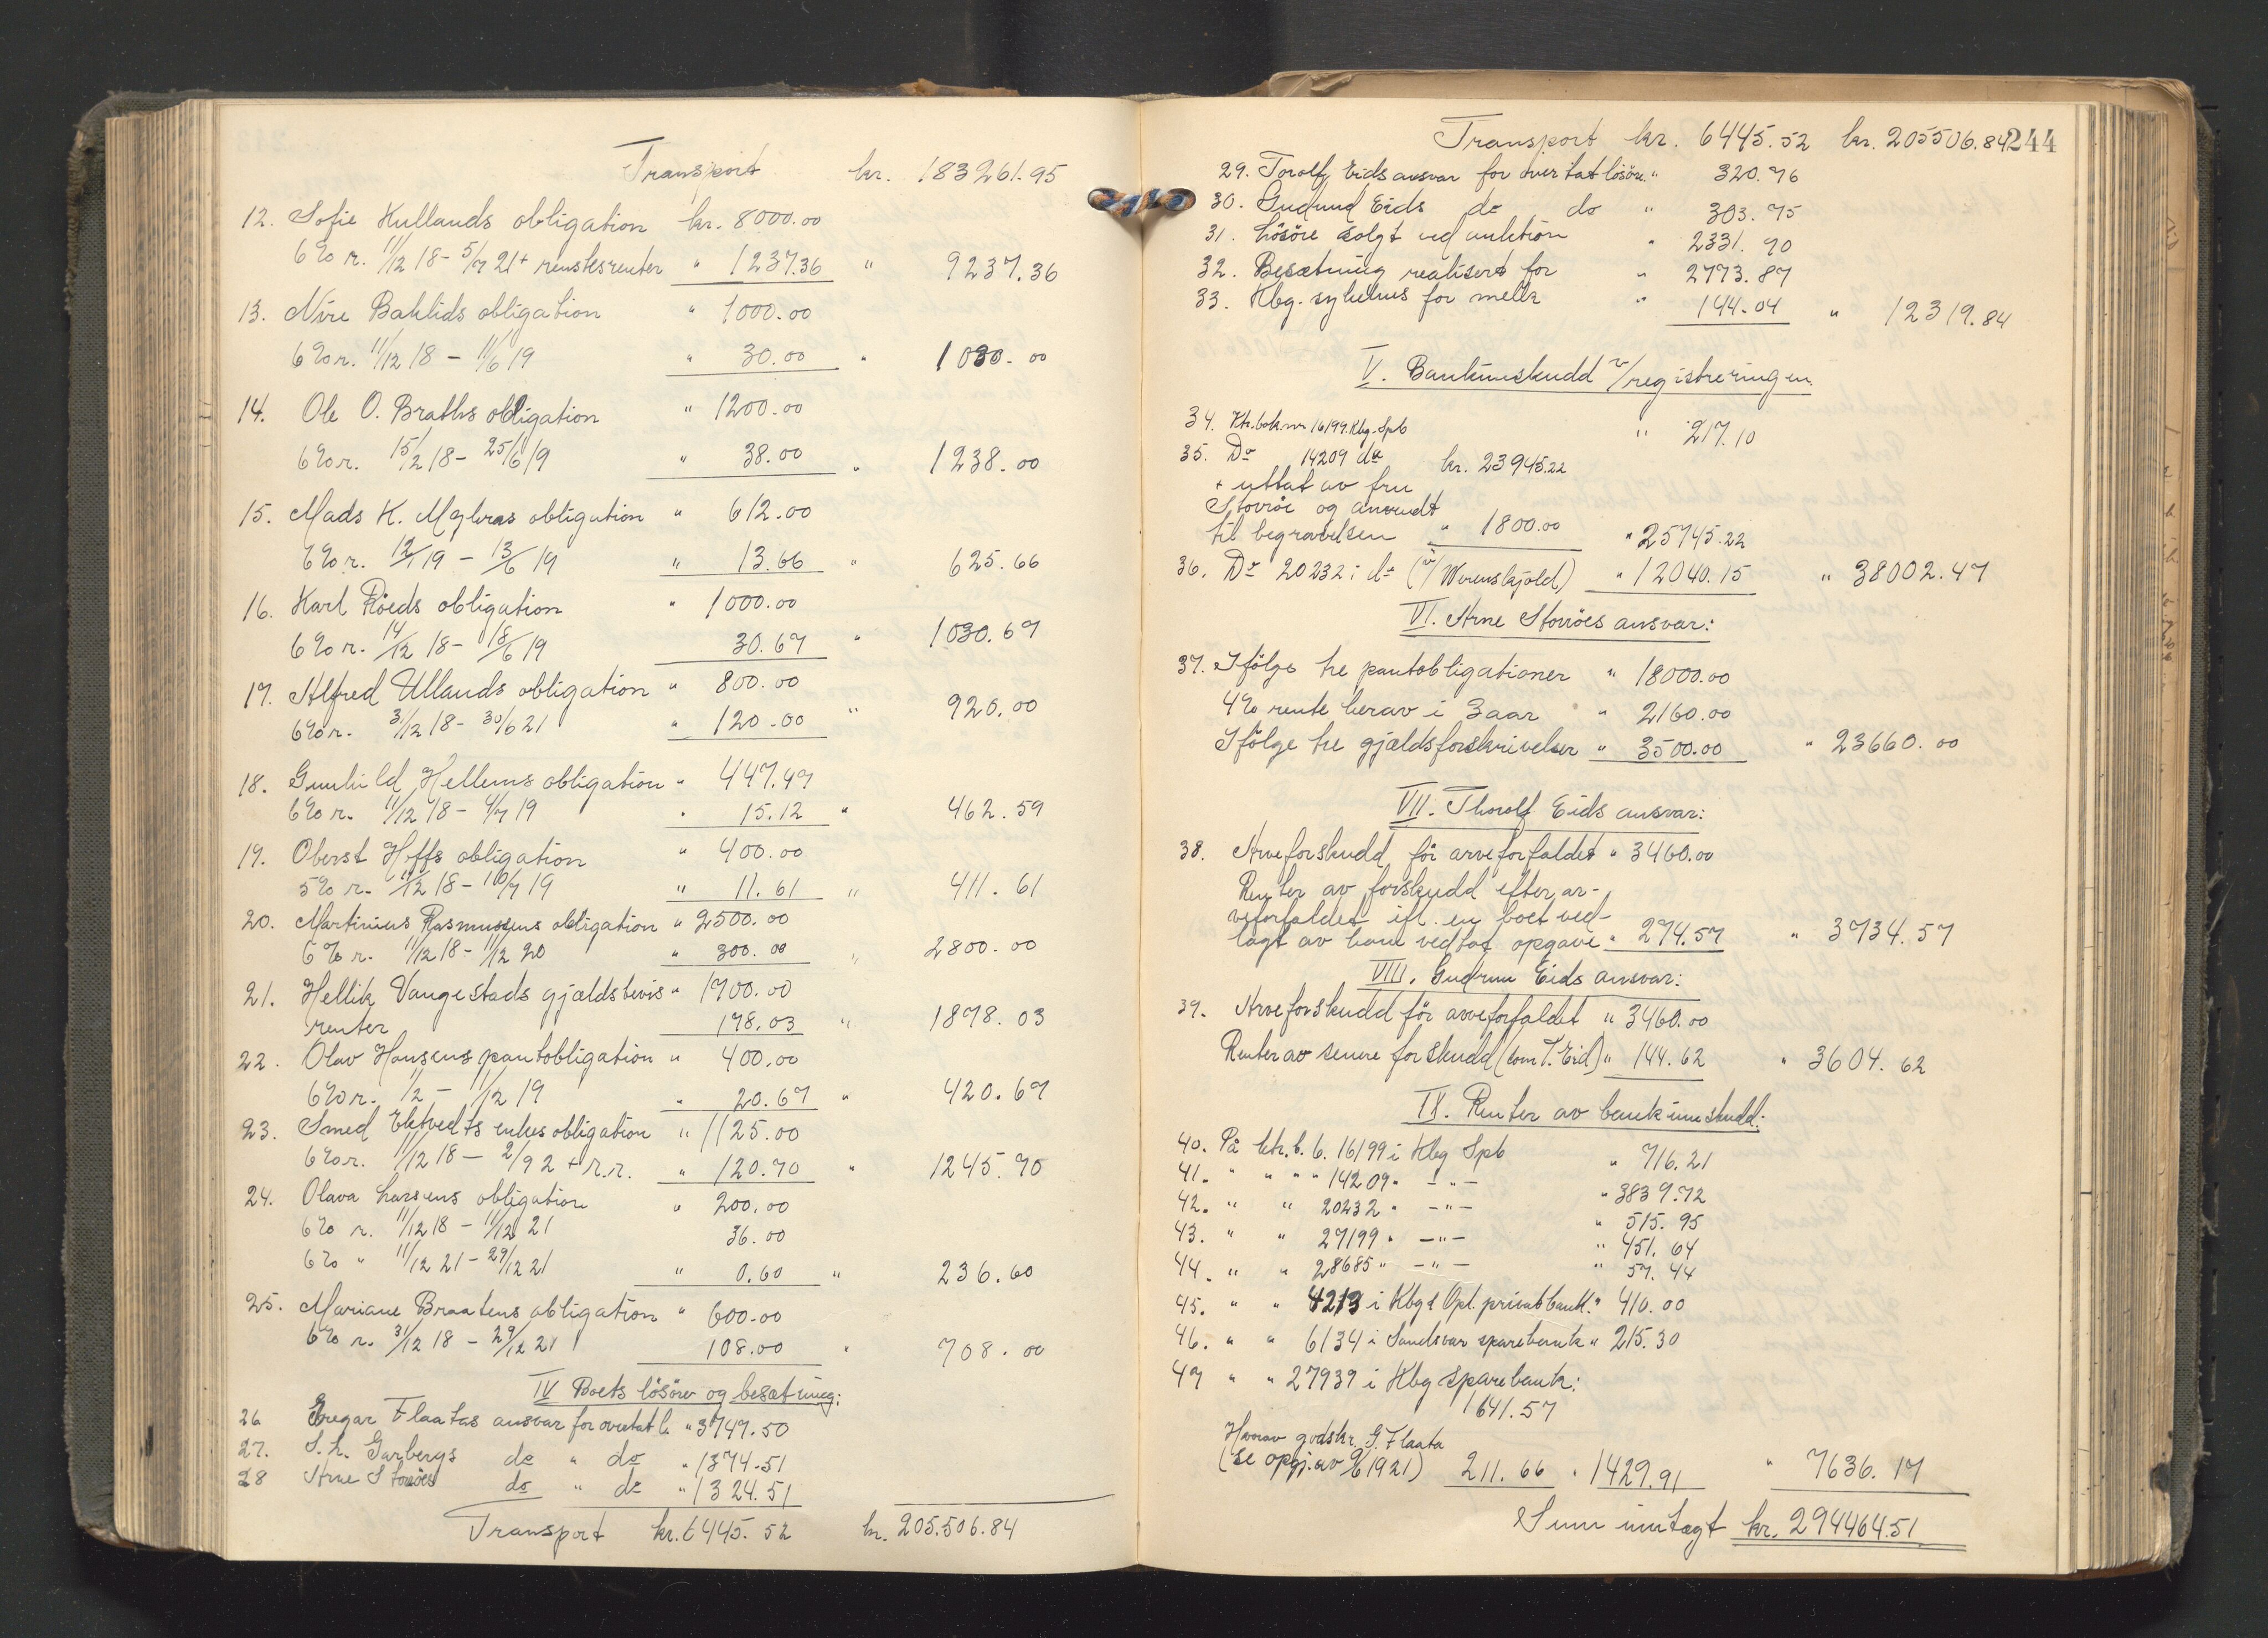 Transport kr. 183261.95
12. Sofie Hullands obligation kr. 8000.00
6% r. 11/12 18 - 5/7 21 + rentesrenter " 1237.36 " 9237.36
13. Nire Baklids obligation " 1000.00
6% r. 11/12 18 - 11/6 19 " 30.00 " 1030.00
14. Ole O. Braths obligation " 1200.00
6% r. 15/12 18 - 25/6 19 " 38.00 " 1238.00
15. Mads K. obligation " 612.00
6% r. 12/1 19 - 13/6 19 " 13.66 " 625.66
16. Karl Röeds obligation " 1000.00
6% r. 14/12 18 - 18/6 19 30.67 " 1030.67
17. Alfred Ullands obligation " 800.00
6% r. 31/12 18 - 30/6 21 " 120.00 " 920.00
18. Gunhild Hellems obligation " 447.47
6% r. 11/12 18 - 4/7 19 " 15.12 " 462.59
19. Oberst Hoffs obligation " 400.00
5% r. 11/12 18 - 10/7 19 " 11.61 " 411.61
20. Martinius Rasmussens obligation " 2500.00
6% r. 11/12 18 - 11/12 20 " 300.00 " 2800.00
21. Hellik Vangestads gjældsbevis " 1700.00
renter 178.03 " 1878.03
22. Olav Hansens pantobligation " 400.00
6% r. 1/2 - 11/12 19 " 20.67 " 420.67
23. Smed Ektvedts enkes obligation " 1125.00
6% r. 11/12 18 - 2/9 2 + r.r. " 120.70 " 1245.70
24. Olava Larsens obligation " 200.00
6% r. 11/12 18 - 11/12 21 36.00
6% " 11/12 21 - 29/12 21 " 0.60 " 236.60
25. Mariane Braatens obligation " 600.00
6% r. 31/12 18 - 29/12 21 108.00 " 708.00
IV Boets lösöre og besætning:
26 Gregar Flaatas ansvar for overtat l. " 3747.50
27. S. L. Garbergs do " do " 1374.51
28 Arne Storöes do " do " 1324.51
Transport kr. 6445.52 kr. 205.506.84
Transport kr. 6445.52 kr. 205506.84 244
29. Torolf Eids ansvar for overtat lösöre " 320.76
30. Gudrund Eids do do " 303.75
31. Lösöre solgt ved auktion " 2331.90
32. Besætning realisert for " 2773.87
33. Kbg. sykehus for melk " 144.04 " 12319.84
V. Bankinnskudd v/registreringen.
34. Ktr.bok nr 16199 Kbg. Spb " 217.10
35. Do 14209 do kr. 23945.22
+ uttat av fru
Storöe og anvendt
til begravelsen " 1800.00 " 25745.22
36. Do 20232 i do (v/ Werenskjold) " 12040.15 " 38002.47
VI. Arne Storöes ansvar:
37. Ifölge tre pantobligationer " 18000.00
4% rente herav i 3 aar " 2160.00
Ifölge tre gjældsforskrivelser " 3500.00 " 23660.00
VII. Thorolf Eids ansvar:
38. Arveforskudd för arveforfaldet " 3460.00
Renter av forskudd efter ar-
veforfaldet ifl. en boet ved-
lagt av ham vedtat opgave " 274.57 " 3734.57
VIII. Gudrun Eids ansvar:
39. Arveforskudd för arveforfaldet " 3460.00
Renter av senere forskudd (som T. Eid) " 144.62 " 3604.62
IX. Renter av bankinnskudd:
40. På ktr. b. 16199 i Kbg Spb " 716.21
41. " " " " 14209 " - " - " 3839.72
42. " " 20232 " - " - " 515.95
43. " " 27199 " - " - " 451.64
44. " " 28685 " - " - " 57.44
45. " " 4213 i Kbg & Opl. privatbank " 410.00
46. " " 6134 i Sandsvær sparebank " 215.30
47 " " 27939 i Kbg sparebank:
1641.57
Herav godskr. G. Flaata
(se opgj. av 9/6 1921) 211.66 " 1429.91 " 7636.17
Sum inntægt kr. 294464.51